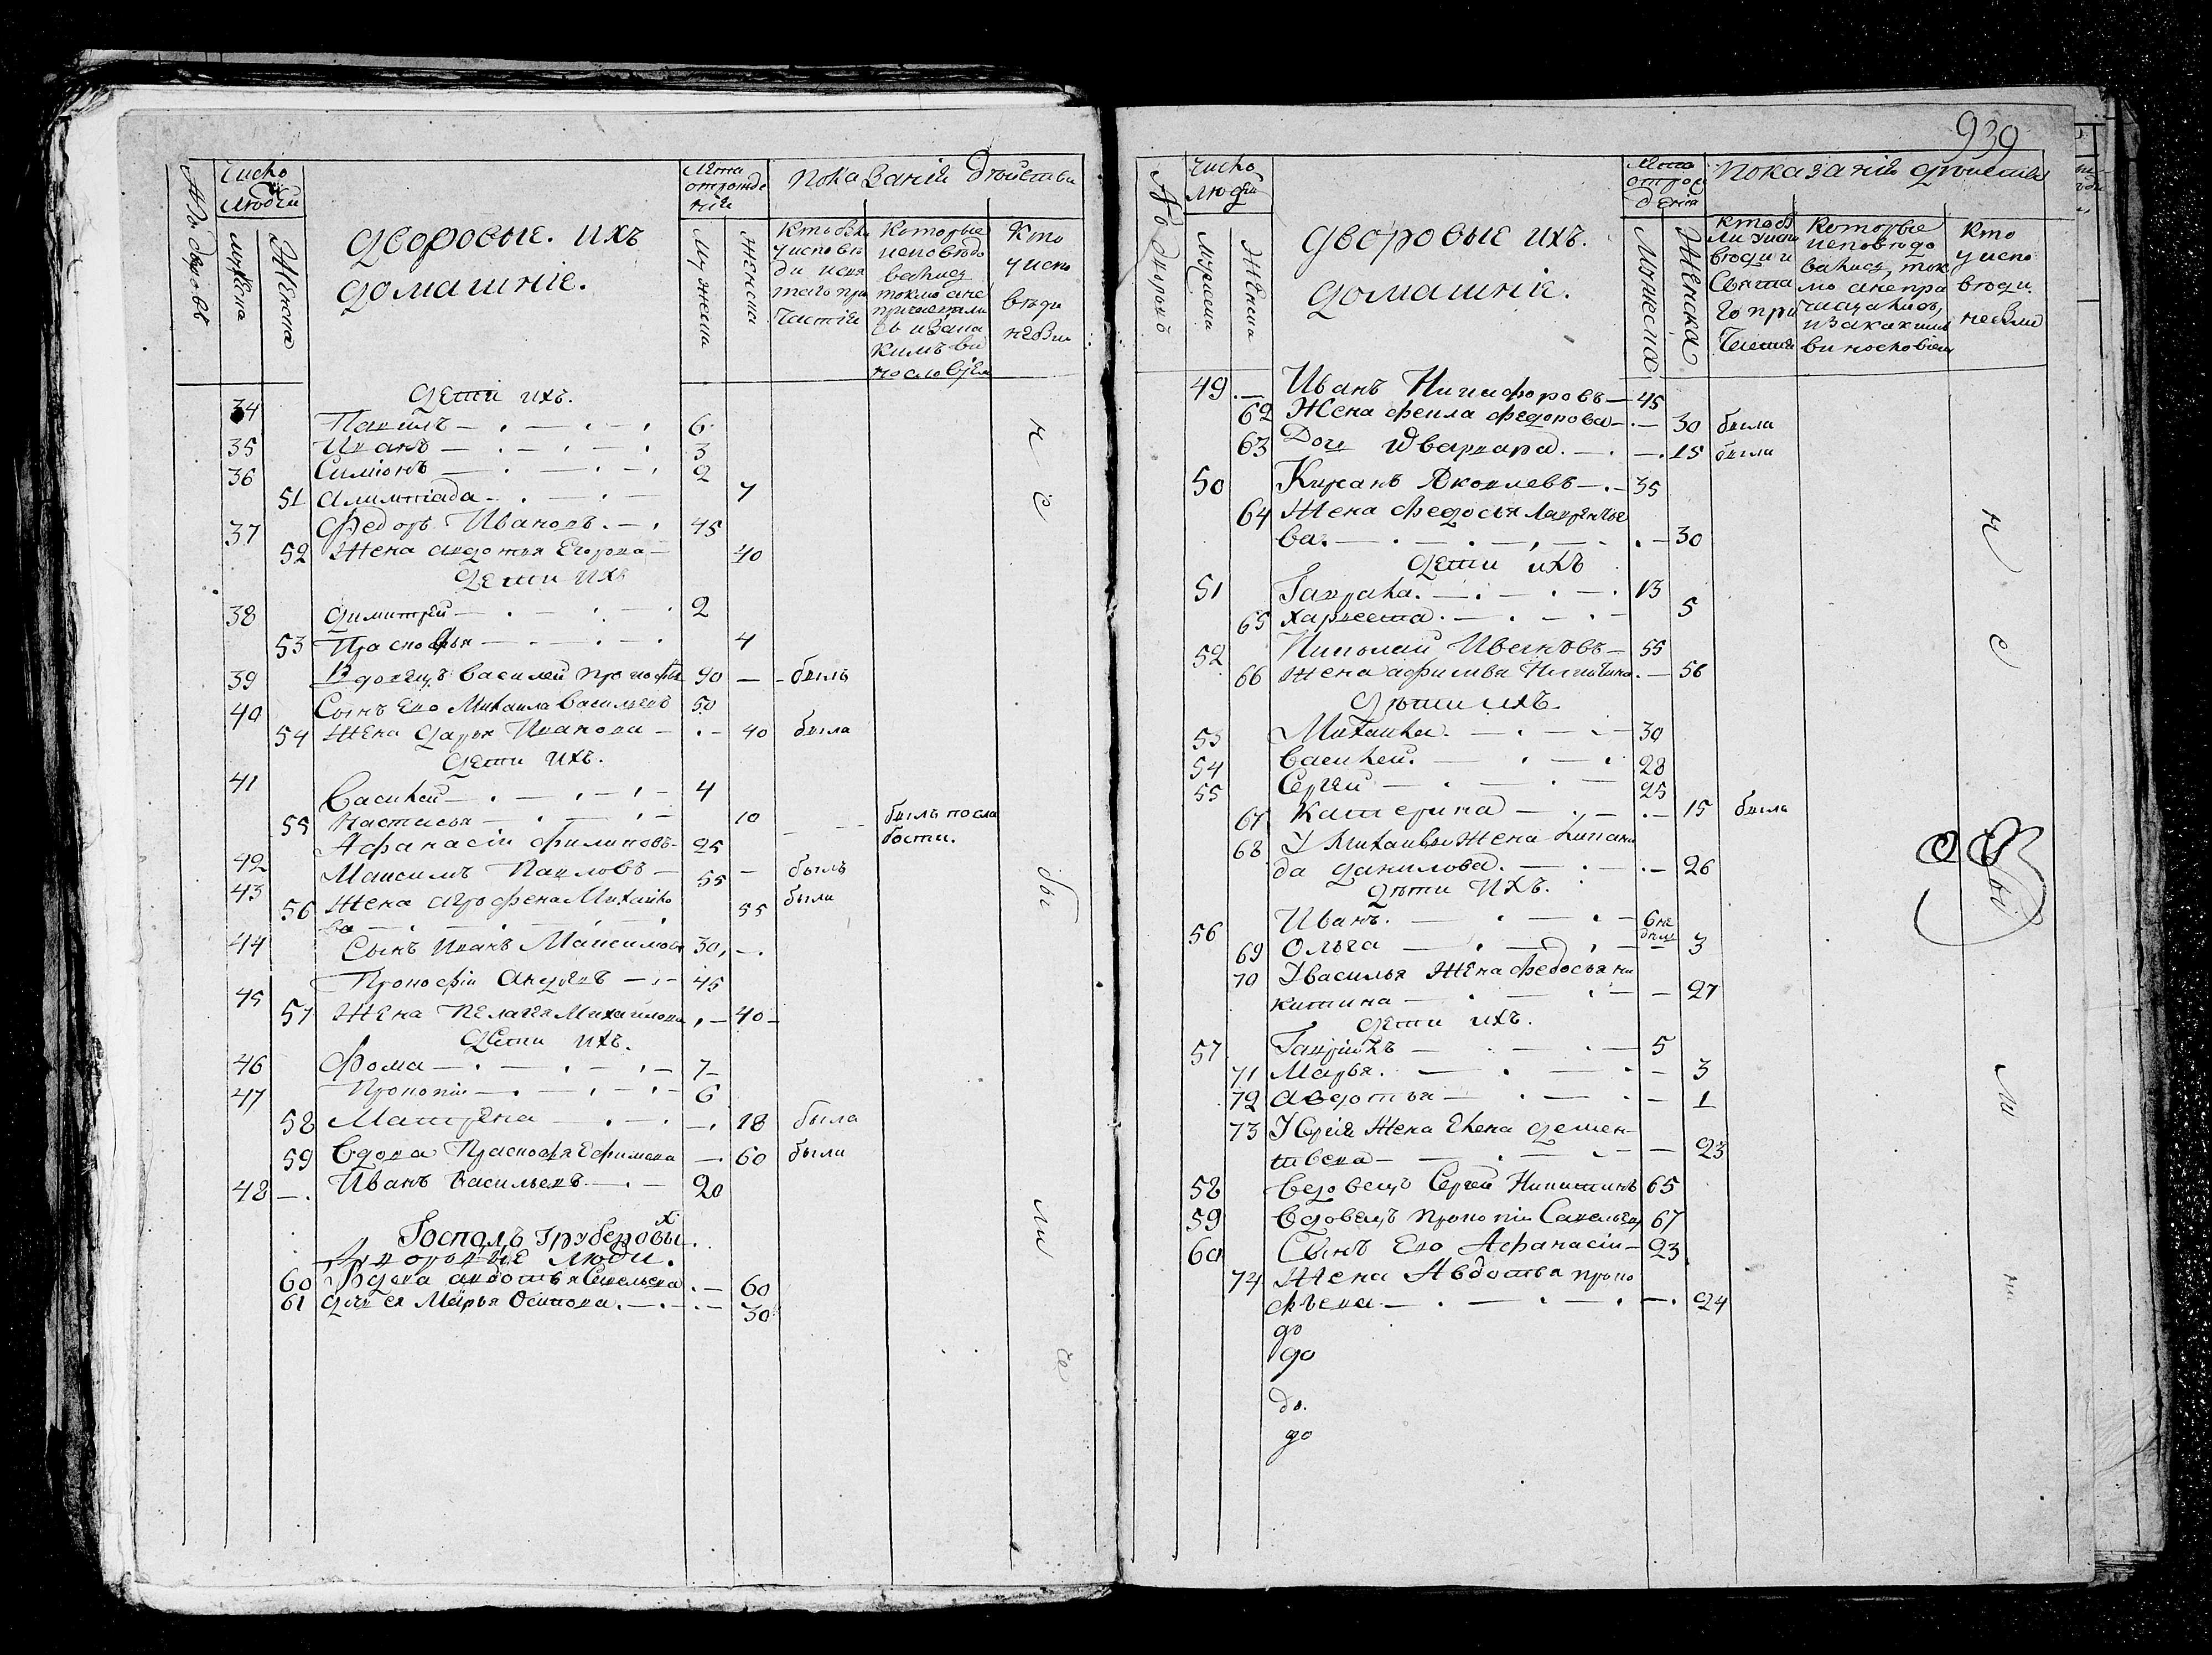 № дворовъ
Число людей
Мужеска
Женска
Дворовые ихъ
домашніе.
Лета отрожденія
Мужеска
Женска
Показаніе действа
Кто были у исповеди и святаго причастія
Которые исповедовались токмо а не причастились и за какимъ винословіем
Кто у исповеди небыл
Дети ихъ.
34 Павилъ — 6
35 Иванъ — 3
36 Симіонъ — 2
51 Алимпіада — 7
37 Федоръ Ивановъ. — 45
52 Жена Авдотья Егорова — 40
Дети ихъ
38 Димитрей — 2
53 Прасковья — 4
39 Вдовецъ Василей Прокофье 90 — — былъ
40 Сынъ Ево Михаила Васильевъ 50
54 Жена Дарья Иванова — 40 была
Дети ихъ.
41 Василей — 4
55 Настасья — 10
Афанасіи Филиповъ — 25 — былъ посла
бости.
42 Максимъ Павловъ — 55 — былъ
43
56 Жена Агрофена Михайло 55 была
ва —
44 Сынъ Иванъ Максимовъ 30, —
Прокофіи Андреевъ — 45
45
57 Жена Пелагея Михаилова — 40 —
Дети ихъ.
46 Фома — 7 —
47 Прокопіи — 6
58 Матрена — 18 была
59 Вдова Прасковья Ефимова — 60 была
48 — Иванъ Васильевъ — 20
Господъ Груберовых
Дворовые люди.
60 Вдова Авдотья Савельева — 60
61 Дочь ея Марья Осипова. — 30
не
бы
ли
939
№ дворовъ
Число людей
Мужеска
Женска
Дворовые ихъ.
Домашніе.
Лета отрождения
Мужеска
Женска
Показаніе действа
Кто были у исповеди и Святаго причастия
Которые исповедовались, токмо а не причащались, и за какимъ винословіем
Кто у исповеди небыли
49. — Иванъ Никифоровъ — 45
62 Жена Фекла Федорова — 30 была
63 Дочь Варвара. — 15 была
50 Кирянъ Яковлевъ — 35
64 Жена Федосья Лаврентье
ва. — 30
Дети ихъ
51 Гаврила. — 13
65 Харъеста — 5
52 Николай Ивановъ — 55
66 Жена Афимья Никитина. — 56
Дети ихъ.
53 Михаила. — 30
54 Василей. — 28
55 Сергеи — 25
67 Катерина — 15 была
68 У Михаилы Жена
да Данилова. — 26
Дети ихъ.
56 Иванъ. — 6 не был
69 Ольга — 3
70 У Василья Жена Федосья Ни
китина — 27
Дети ихъ.
57 — 5
71 Марья. — 3
72 Авдотья — 1
73 У Сергія Жена Елена Демен-
тиева — 23
58 Вдовецъ Сергеи Никитинъ 65
59 Вдовецъ Прокопіи Савельевъ 67
60 Сынъ Ево Афанасіи — 23
74 Жена Авдотья Проко
фьева — 24
до
до
до.
до
не
бы
ли